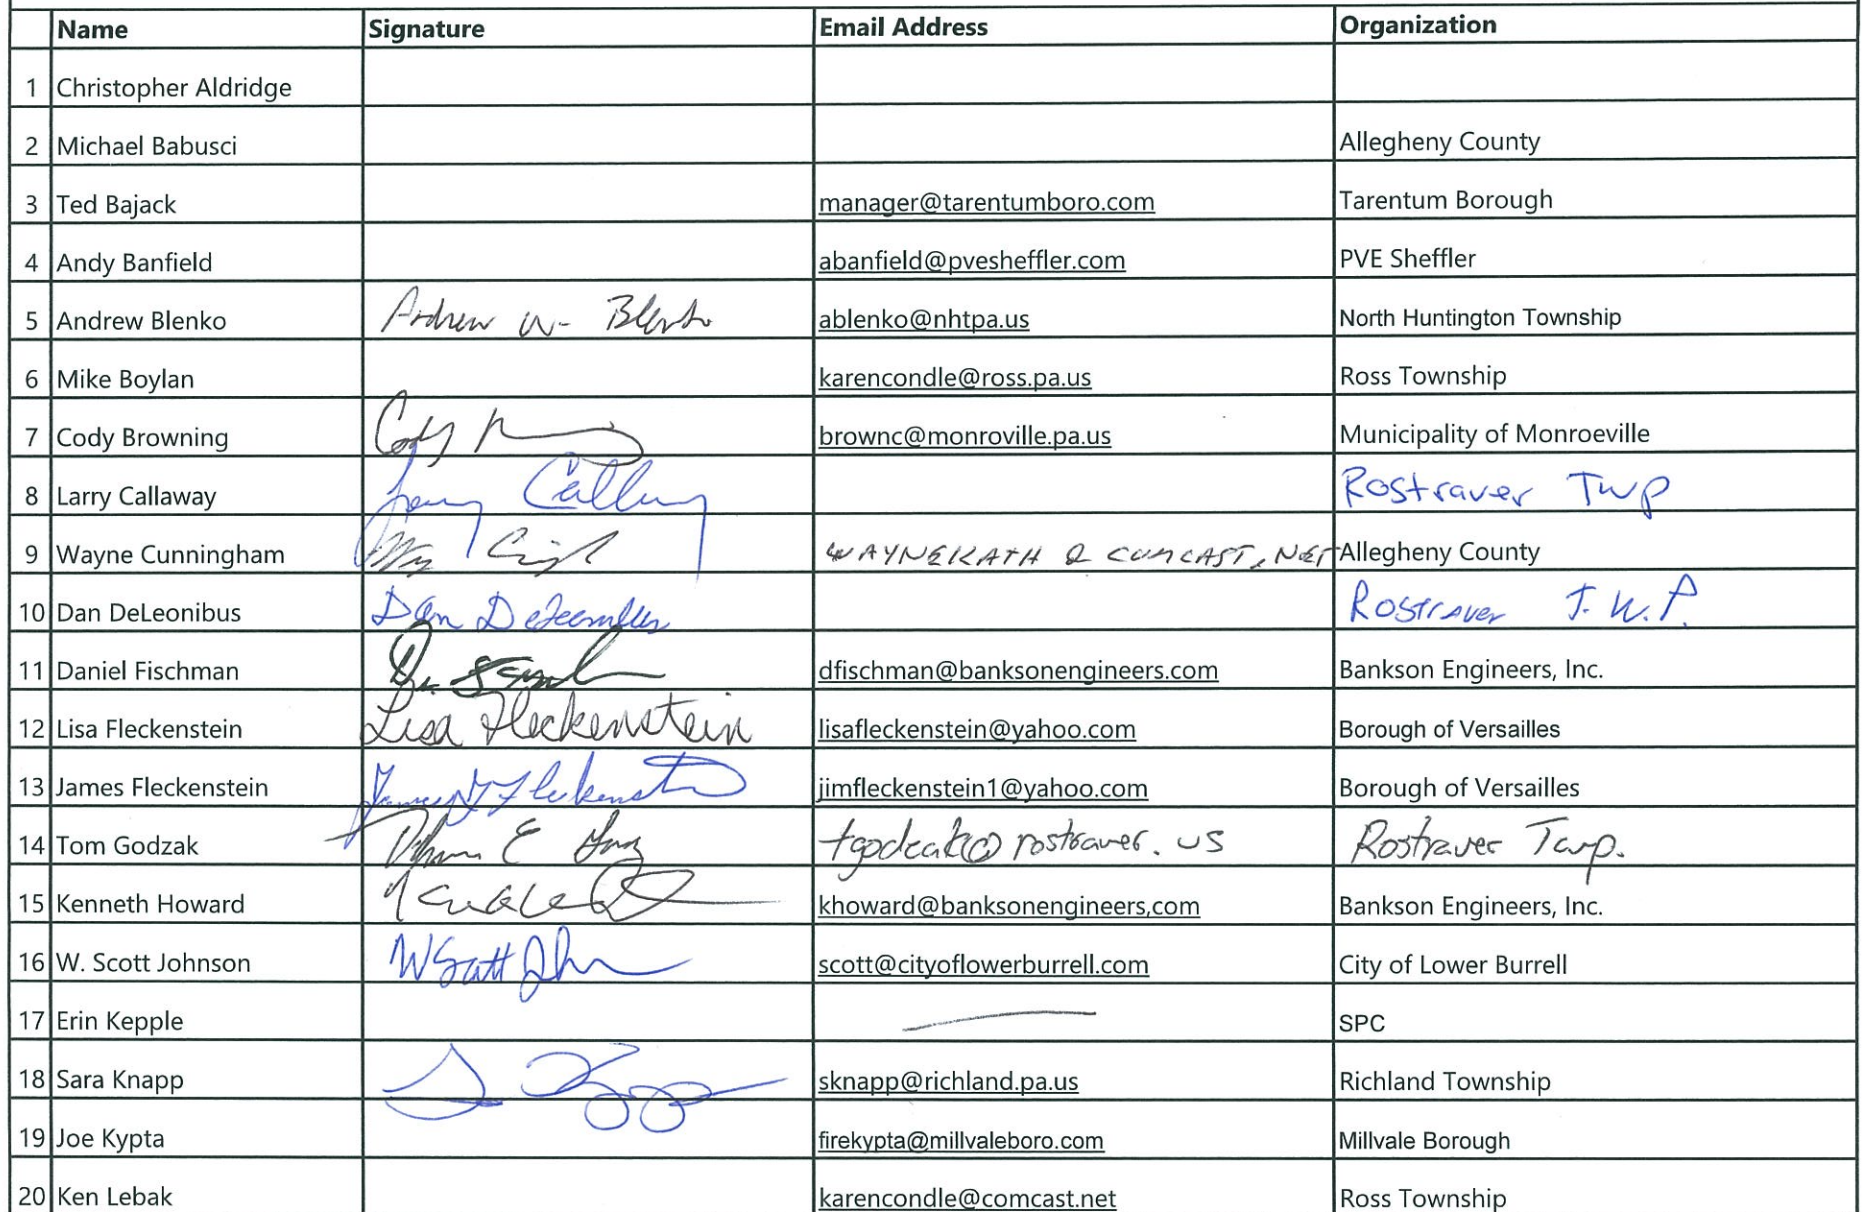 Name Signature Email Address Organization
1 Christopher Aldridge
2 Michael Babusci Allegheny County
3 Ted Bajack manager@tarentumboro.com Tarentum Borough
4 Andy Banfield abanfield@pvesheffler.com PVE Sheffler
5 Andrew Blenko Andrew W. Blenko ablenko@nhtpa.us North Huntington Township
6 Mike Boylan karencondle@ross.pa.us Ross Township
7 Cody Browning Cody brownc@monroville.pa.us Municipality of Monroeville
8 Larry Callaway Rostraver Twp
9 Wayne Cunningham WAYNEKATH @ COMCAST.NET Allegheny County
10 Dan DeLeonibus Dan DeLeonibus Rostraver T.W.P.
11 Daniel Fischman dfischman@banksonengineers.com Bankson Engineers, Inc.
12 Lisa Fleckenstein Lisa Fleckenstein lisafleckenstein@yahoo.com Borough of Versailles
13 James Fleckenstein James Fleckenstein jimfleckenstein1@yahoo.com Borough of Versailles
14 Tom Godzak tgodzak@rostraver.us Rostraver Twp.
15 Kenneth Howard khoward@banksonengineers,com Bankson Engineers, Inc.
16 W. Scott Johnson W Scott John scott@cityoflowerburrell.com City of Lower Burrell
17 Erin Kepple SPC
18 Sara Knapp sknapp@richland.pa.us Richland Township
19 Joe Kypta firekypta@millvaleboro.com Millvale Borough
20 Ken Lebak karencondle@comcast.net Ross Township